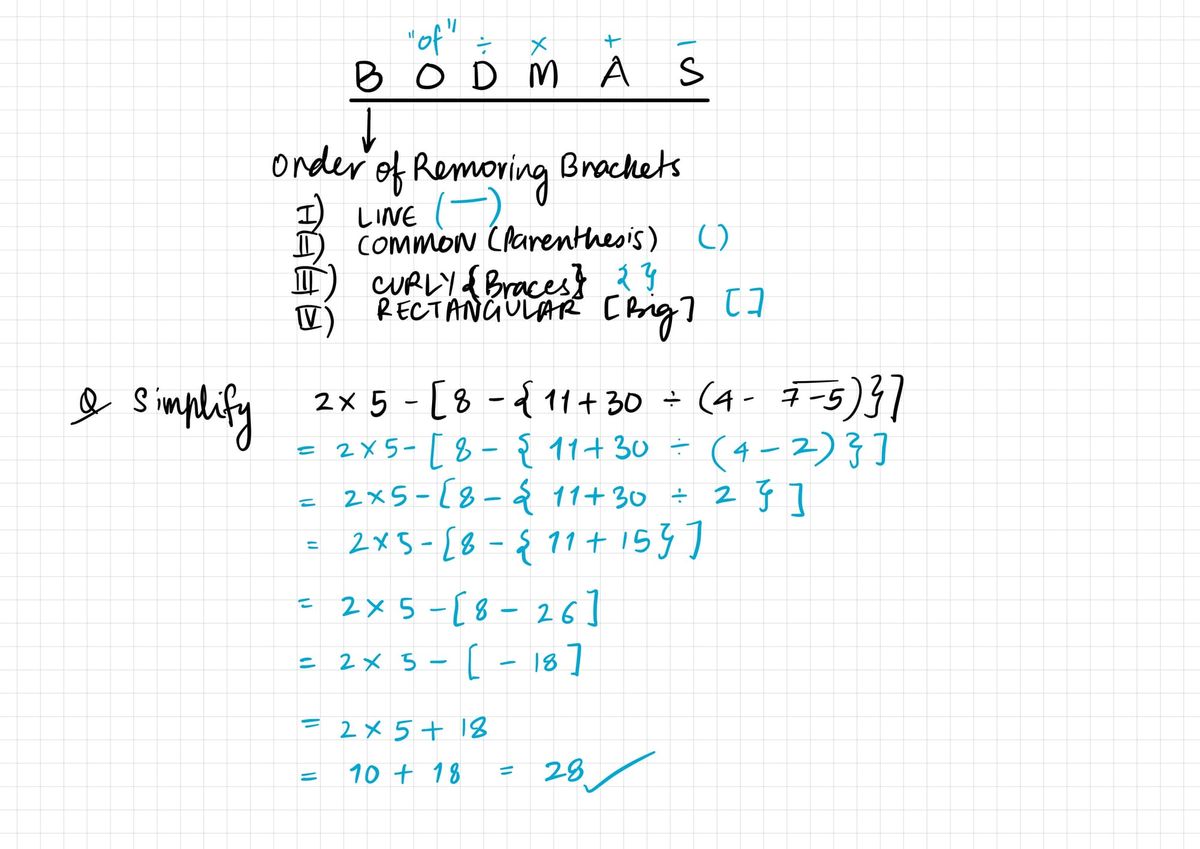 "of" ÷ × + −
B O D M A S
Order of Removing Brackets
I) LINE (—)
II) COMMON (Parenthesis) ()
III) CURLY {Braces} { }
IV) RECTANGULAR [Big] []
Q Simplify 2 × 5 - [8 - { 11 + 30 ÷ (4 - 7̅-̅5̅)}]
= 2 × 5 - [ 8 - { 11 + 30 ÷ (4 - 2) } ]
= 2 × 5 - [8 - { 11 + 30 ÷ 2 } ]
= 2 × 5 - [8 - { 11 + 15} ]
= 2 × 5 - [8 - 26]
= 2 × 5 - [ - 18 ]
= 2 × 5 + 18
= 10 + 18 = 28 ✓